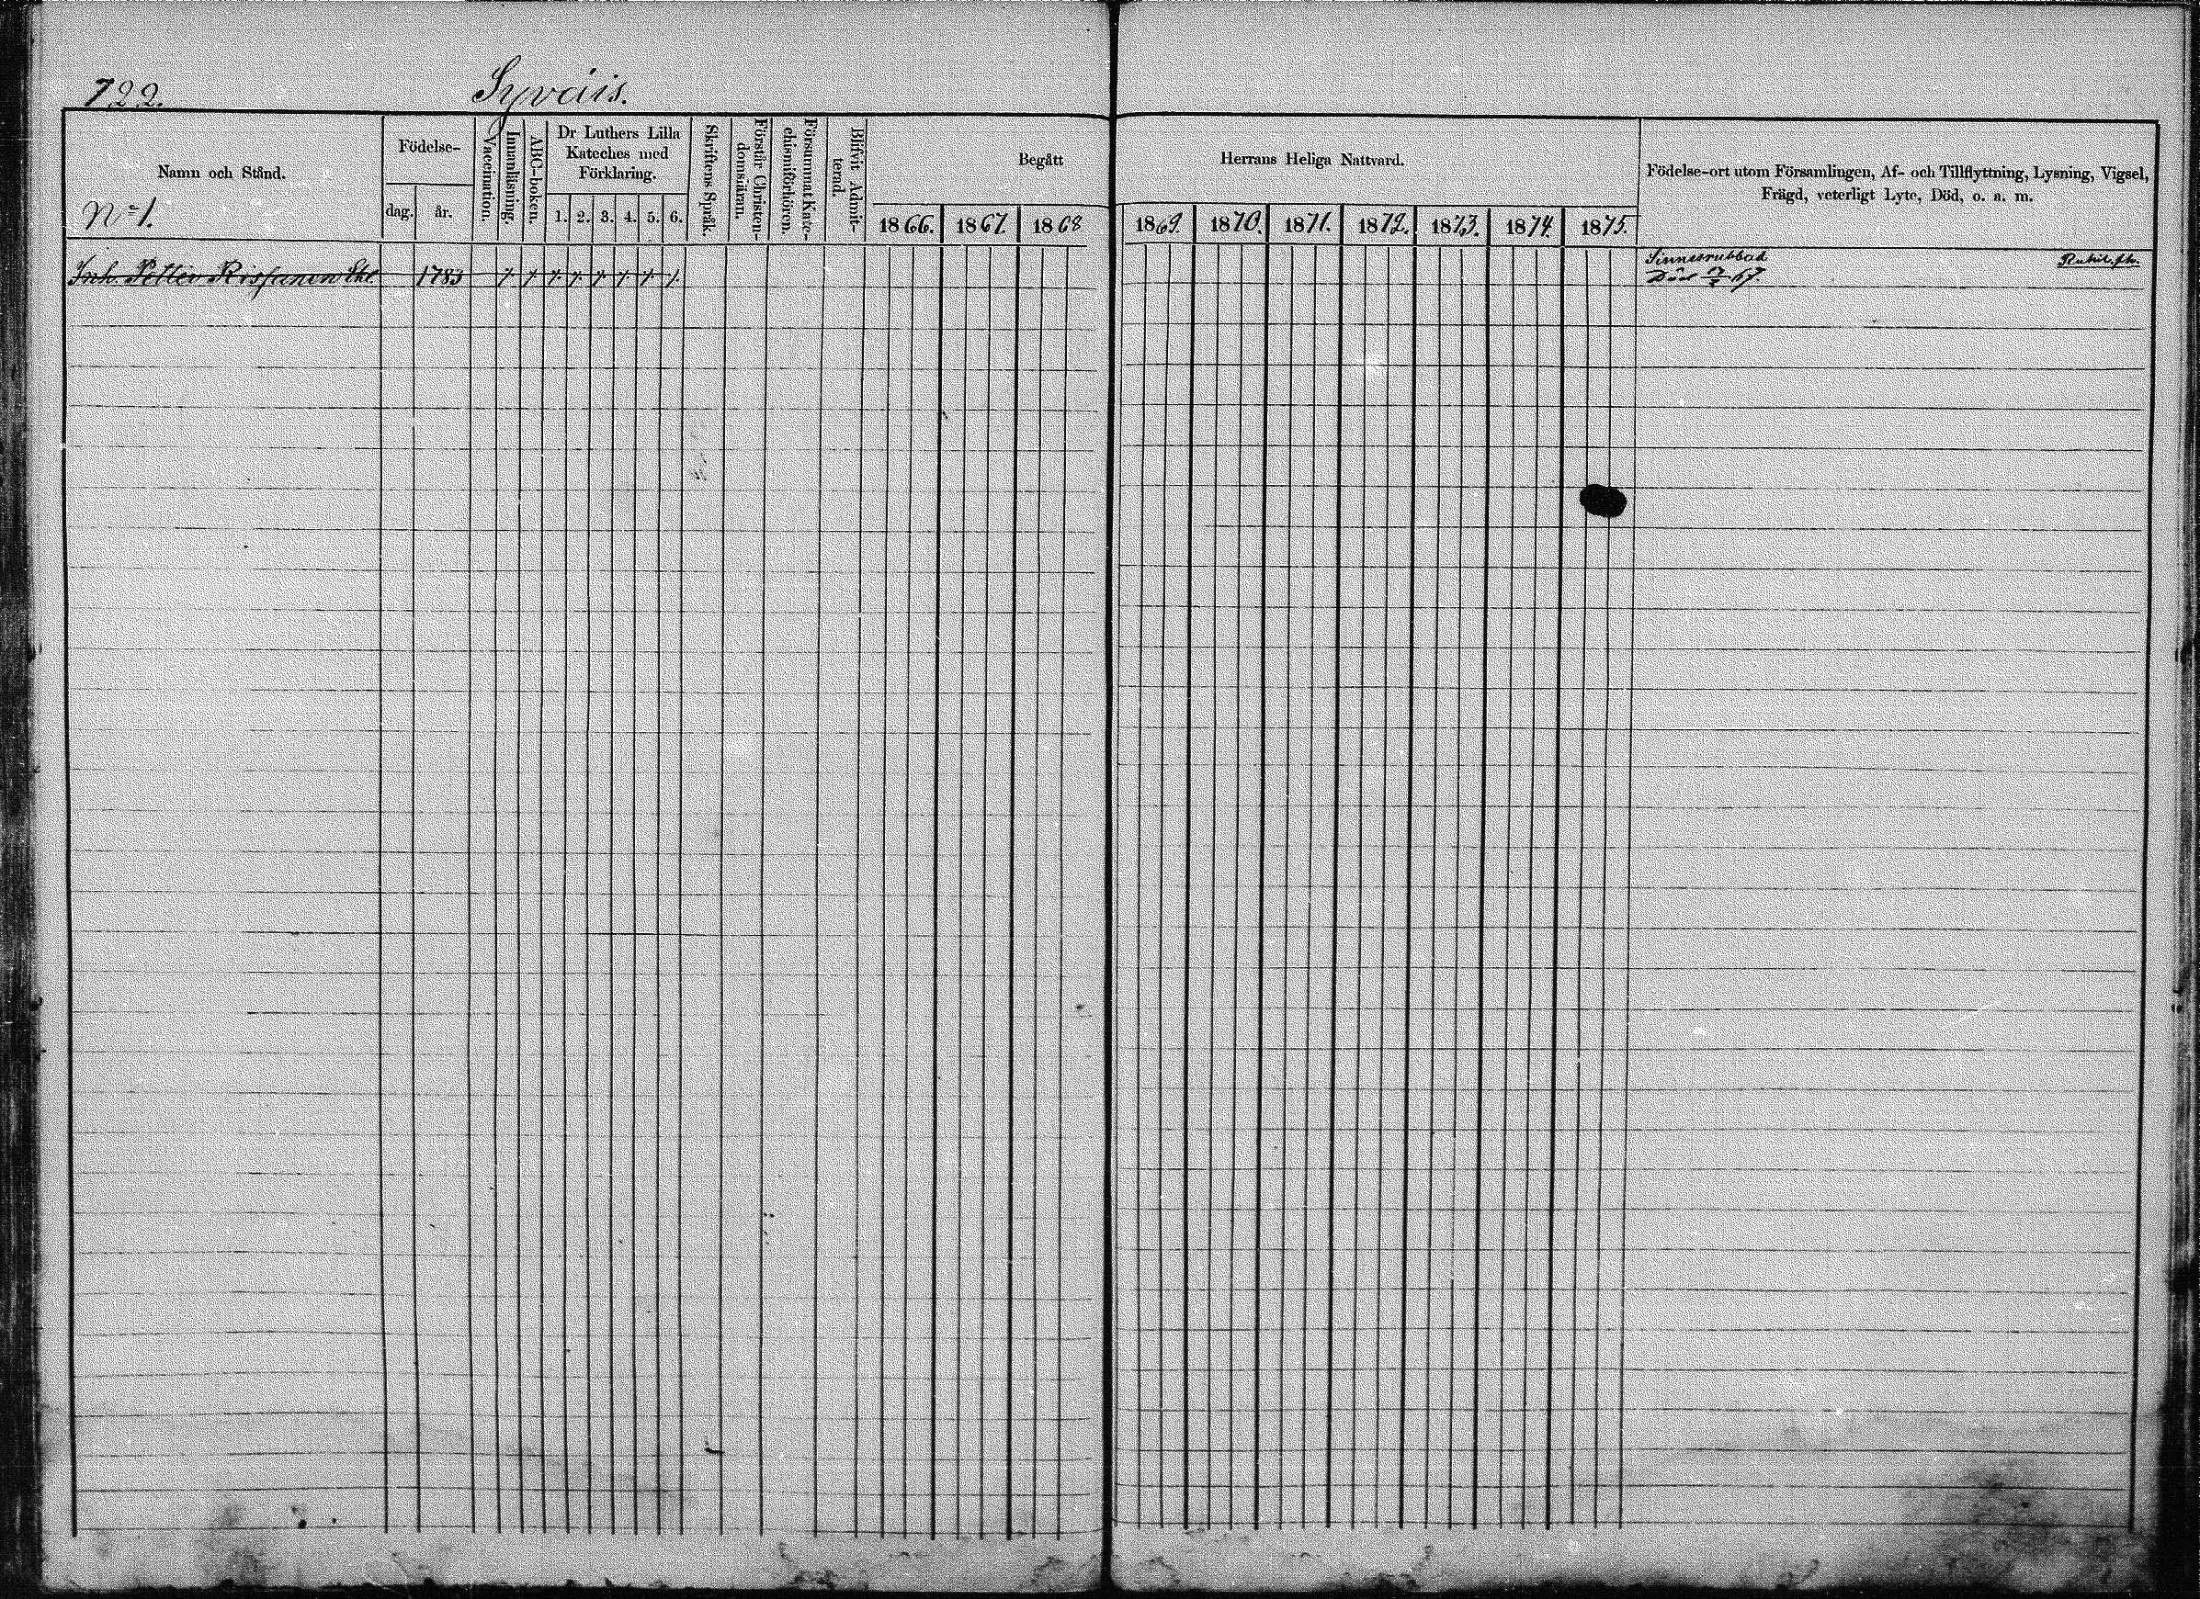 722.
Syväis.
Namn och Stånd.
N=1.
Födelse-
dag. år.
Vaccination.
Innanläsning.
ABC-boken.
Dr Luthers Lilla
Kateches med
Förklaring.
1. 2. 3. 4. 5. 6.
Skriftens Språk.
Förstår Christen-
domsläran.
Försummat Kate-
chismiförhören.
Blifvit Admit-
terad.
Begått
1866. 1867. 1868
Herrans Heliga Nattvard.
1869. 1870. 1871. 1872. 1873. 1874. 1875.
Födelse-ort utom Församlingen, Af- och Tillflyttning, Lysning, Vigsel,
Frägd, veterligt Lyte, Död, o. a. m.
Inh. Petter Rissanen Ekl. 1783
Sinnesrubbad
Död 67.